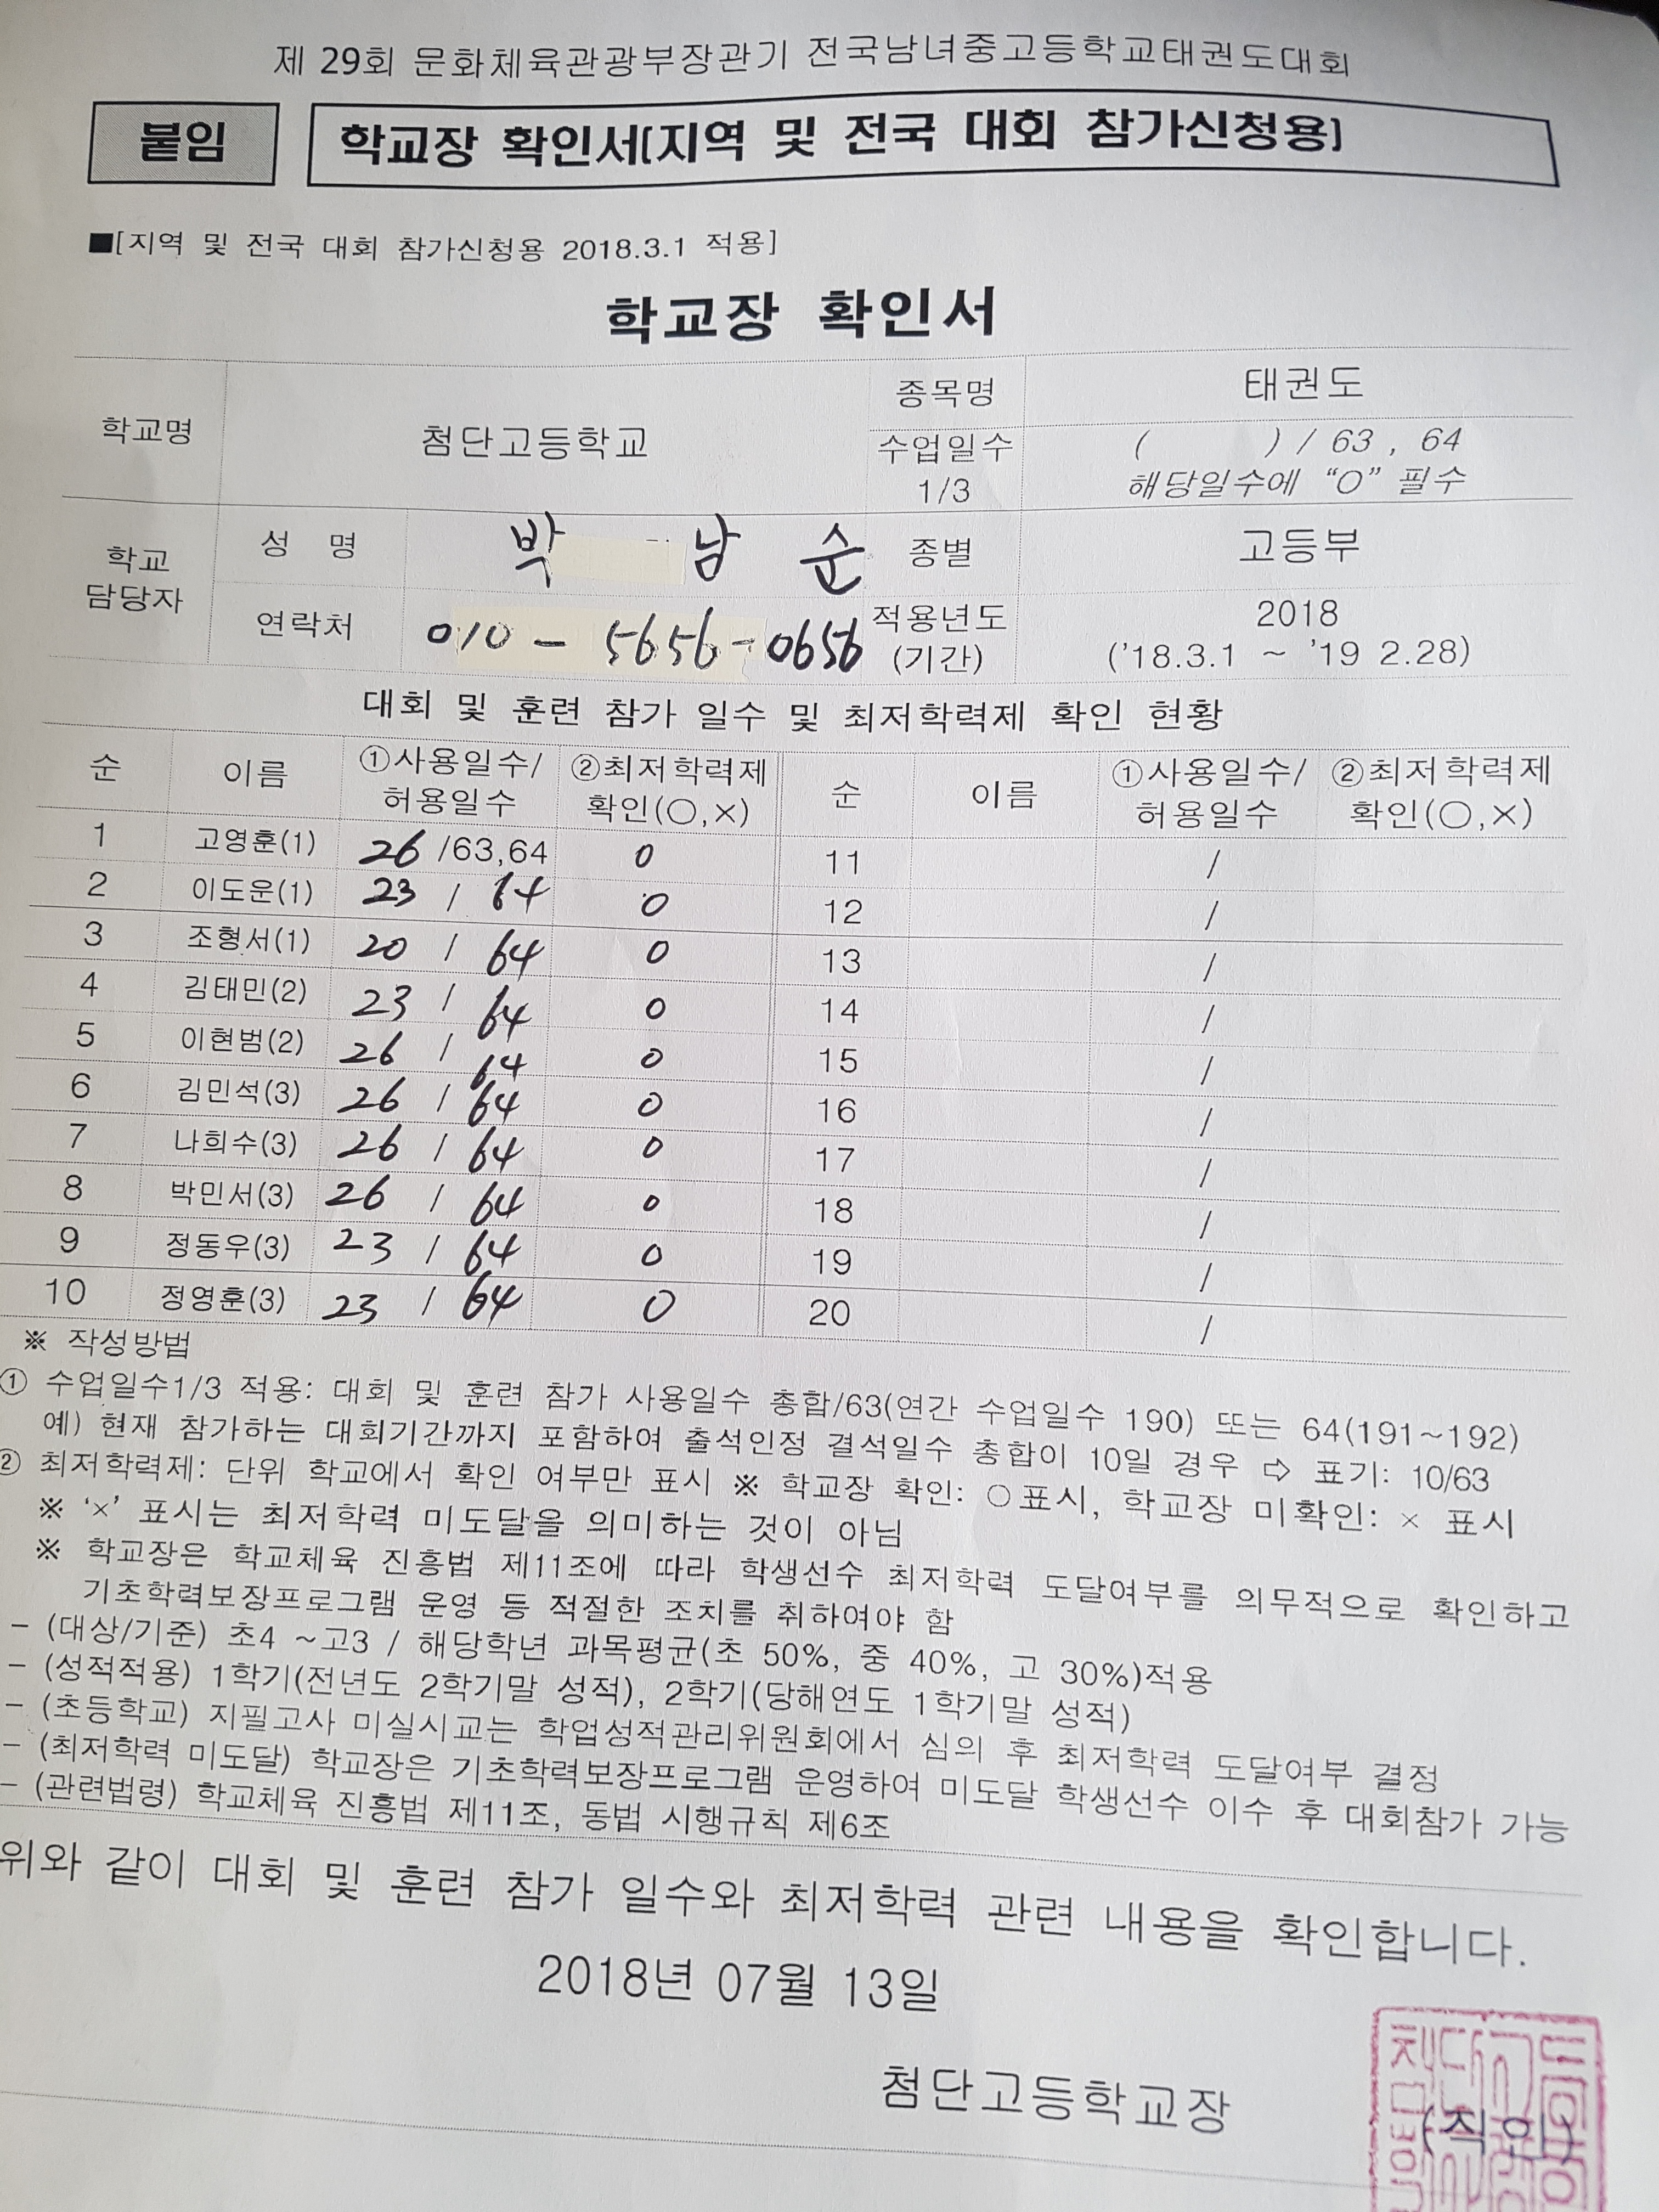 제 29회 문화체육관광부장관기 전국남녀중고등학교태권도대회
붙임 학교장 확인서[지역 및 전국 대회 참가신청용]
■[지역 및 전국 대회 참가신청용 2018.3.1 적용]
학교장 확인서
학교명 첨단고등학교 종목명 태권도
수업일수 1/3 ( ) / 63 , 64
해당일수에 “O” 필수
학교 담당자 성 명 박 남 순 종별 고등부
연락처 010 - 5656 - 0656 적용년도 (기간) 2018
('18.3.1 ~ '19 2.28)
대회 및 훈련 참가 일수 및 최저학력제 확인 현황
순 이름 ①사용일수/허용일수 ②최저학력제 확인(○,×) 순 이름 ①사용일수/허용일수 ②최저학력제 확인(○,×)
1 고영훈(1) 26 /63,64 0 11 /
2 이도운(1) 23 / 64 0 12 /
3 조형서(1) 20 / 64 0 13 /
4 김태민(2) 23 / 64 0 14 /
5 이현범(2) 26 / 64 0 15 /
6 김민석(3) 26 / 64 0 16 /
7 나희수(3) 26 / 64 0 17 /
8 박민서(3) 26 / 64 0 18 /
9 정동우(3) 23 / 64 0 19 /
10 정영훈(3) 23 / 64 0 20 /
※ 작성방법
① 수업일수1/3 적용: 대회 및 훈련 참가 사용일수 총합/63(연간 수업일수 190) 또는 64(191~192)
예) 현재 참가하는 대회기간까지 포함하여 출석인정 결석일수 총합이 10일 경우 ⇨ 표기: 10/63
② 최저학력제: 단위 학교에서 확인 여부만 표시 ※ 학교장 확인: ○표시, 학교장 미확인: × 표시
※ ‘×’ 표시는 최저학력 미도달을 의미하는 것이 아님
※ 학교장은 학교체육 진흥법 제11조에 따라 학생선수 최저학력 도달여부를 의무적으로 확인하고
기초학력보장프로그램 운영 등 적절한 조치를 취하여야 함
- (대상/기준) 초4 ~고3 / 해당학년 과목평균(초 50%, 중 40%, 고 30%)적용
- (성적적용) 1학기(전년도 2학기말 성적), 2학기(당해연도 1학기말 성적)
- (초등학교) 지필고사 미실시교는 학업성적관리위원회에서 심의 후 최저학력 도달여부 결정
- (최저학력 미도달) 학교장은 기초학력보장프로그램 운영하여 미도달 학생선수 이수 후 대회참가 가능
- (관련법령) 학교체육 진흥법 제11조, 동법 시행규칙 제6조
위와 같이 대회 및 훈련 참가 일수와 최저학력 관련 내용을 확인합니다.
2018년 07월 13일
첨단고등학교장 (직인)